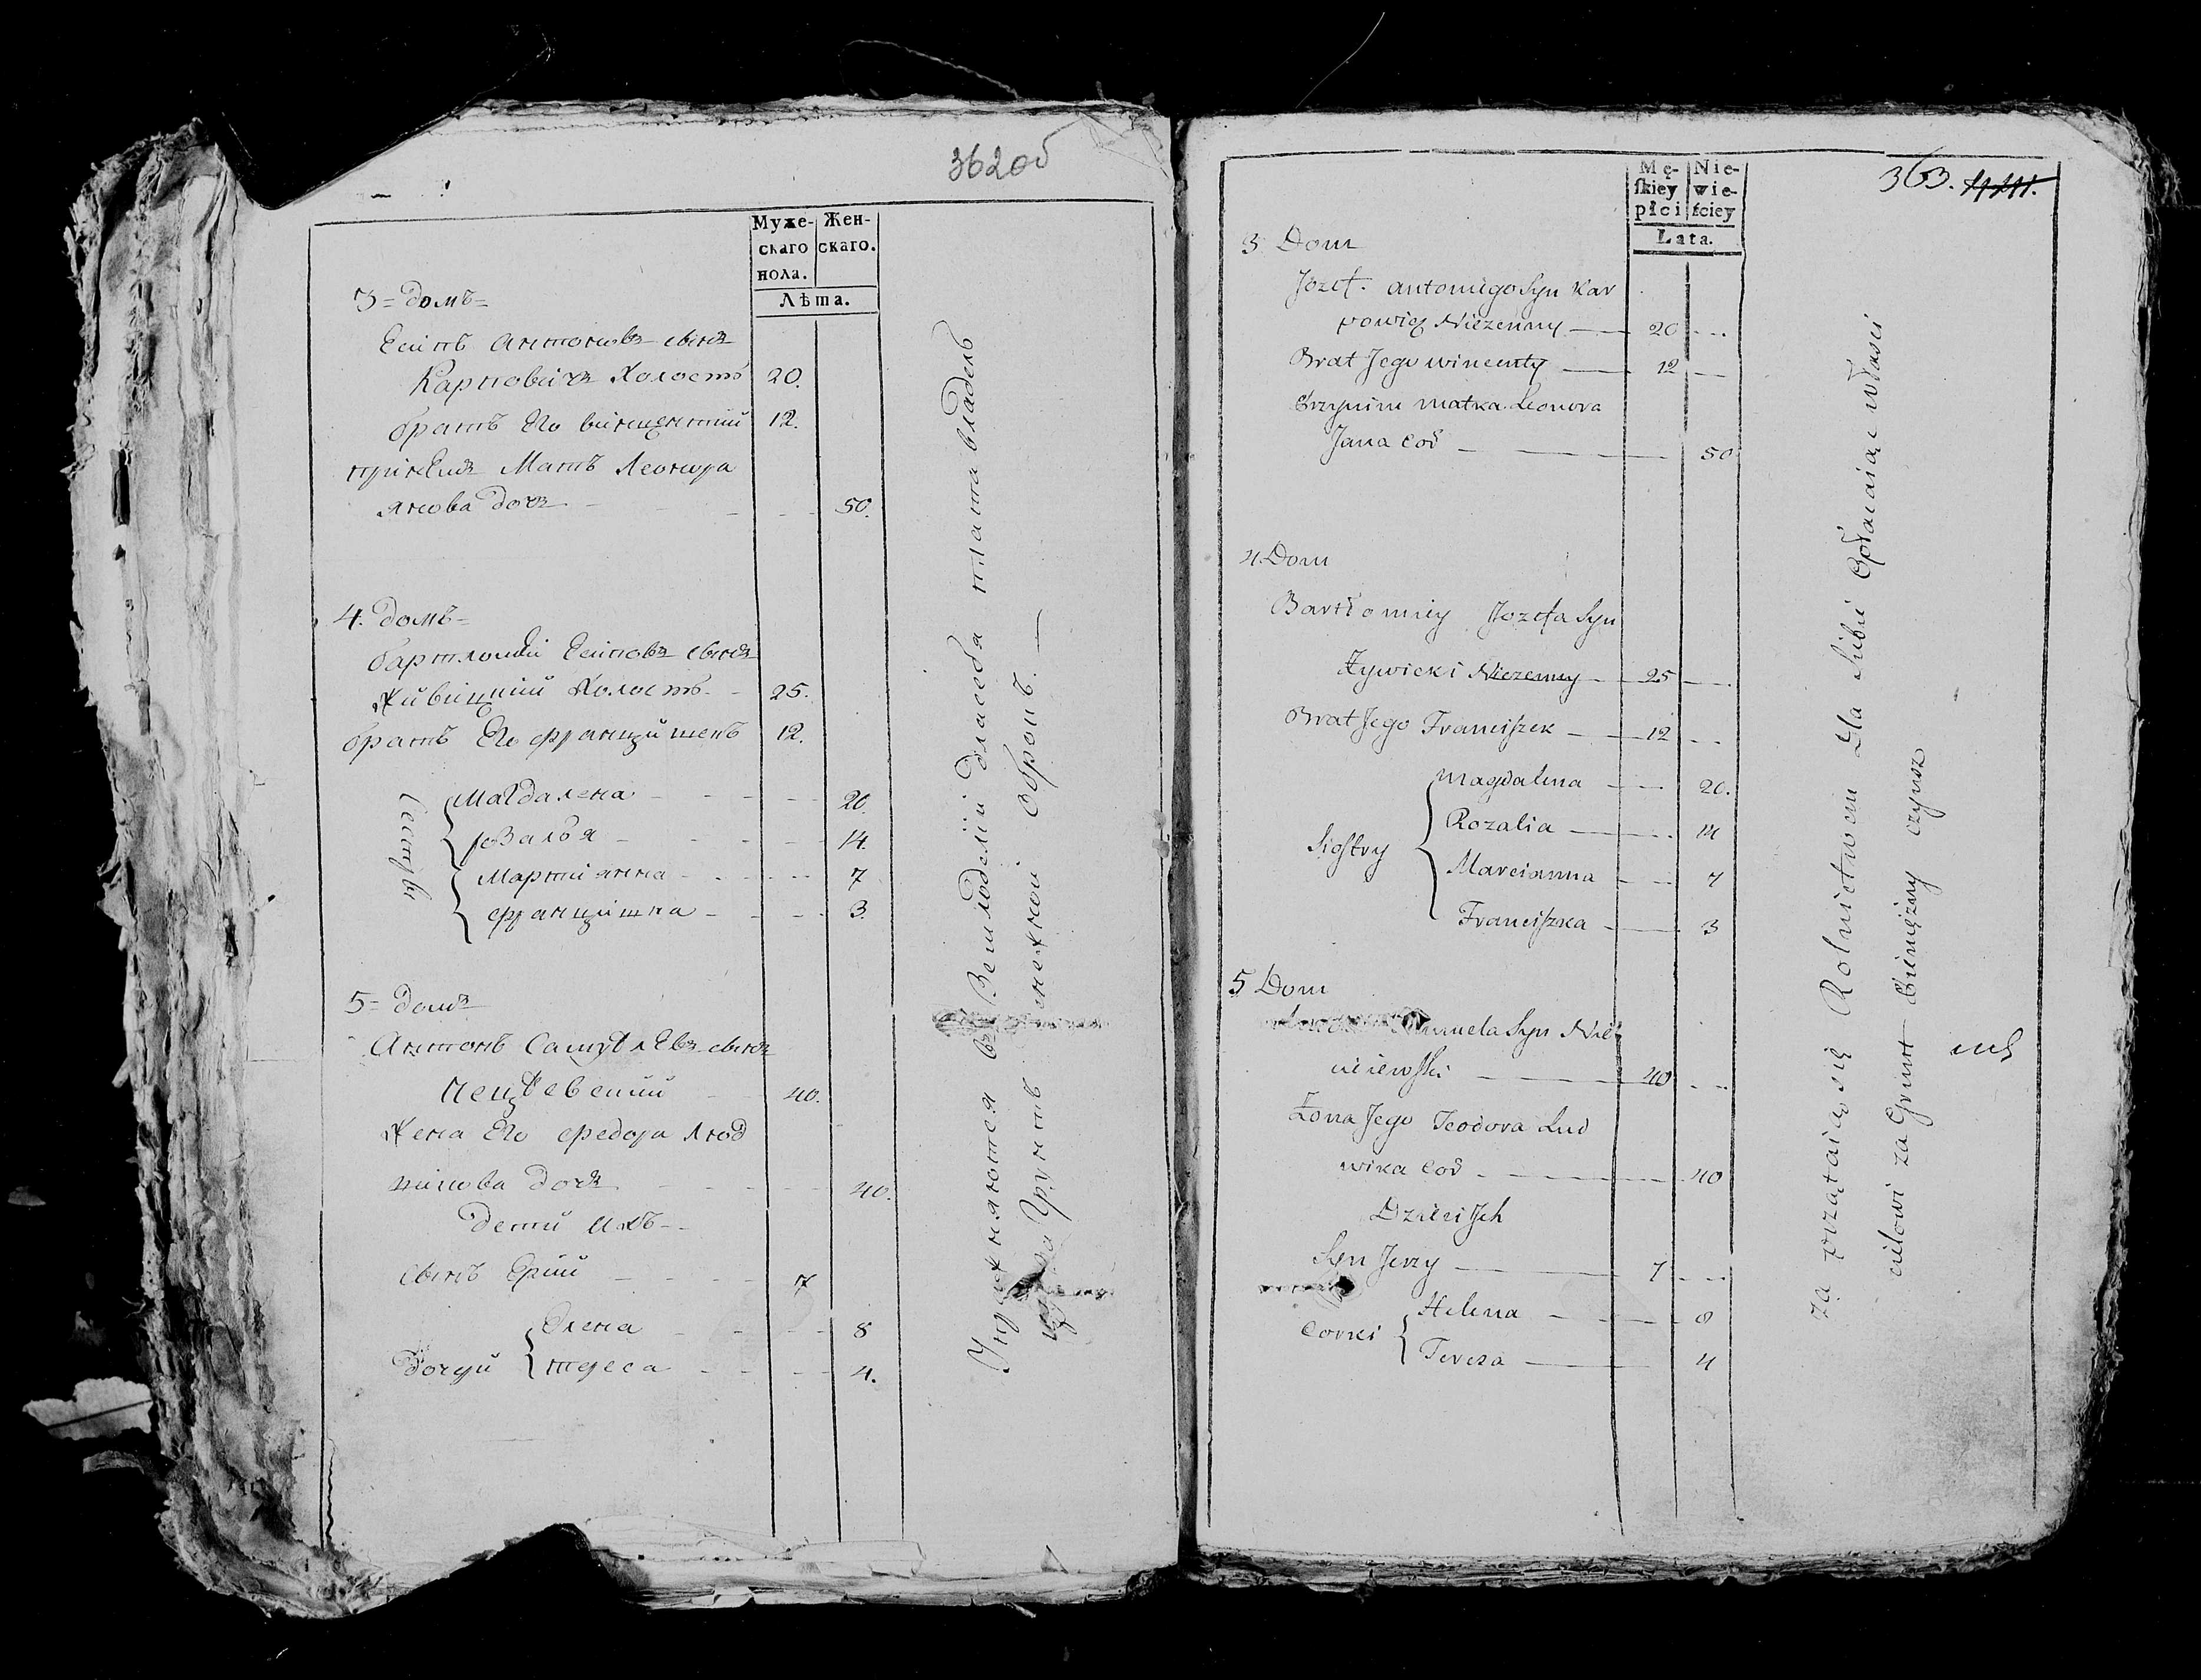 362 об
Муже- Жен-
скаго скаго.
пола.
Лѣта.
3 = домъ =
Есипъ Антоновъ сынъ
Карповичъ Холостъ 20.
братъ Его винцентий 12.
при нем Мать Леонора
янова дочь 50.
4. домъ =
бартломей Есиповъ сынъ
Живицкий Холостъ 25.
братъ Его францишекъ 12.
Сестры
Магдалена 20.
розалия 14.
Мартиянна 7
францишка 3.
5 = домъ
Антонъ Самуелевъ сынъ
40.
Жена Его федора Люд
викова дочь 40.
дети ихъ
сынъ Ерий 7
дочери
Элена 8
тереса 4.
Упражняются въ Земледелии для себя плата владель
цу за Грунтъ Оброкъ. —
363.
Mę- Nie-
skiey wie-
płci ściey
Lata.
3 Dom
Jozef. Antoniego Syn Kar
powicz Nieżenny 20
Brat Jego wincenty 12
Przynim matka Leonora
Jana Cor 50
4 Dom
Bartłomiey Jozefa Syn
Żywicki Nieżenny 25
Brat Jego Franciszek 12
Siostry
Magdalena 20.
Rozalia 14
Marcianna 7
Franciszka 3
5 Dom
Samuela Syn Nie
ciejewski 40
Żona Jego Teodora Lud
wika Cor 40
Dzieci Jch
Syn Jerzy 7
Corki
Helena 8
Teresa 4
Rolnictwem Dla Siebie Opłaciaiąc właści
cielowi za Grunt Pieniężny czynsz